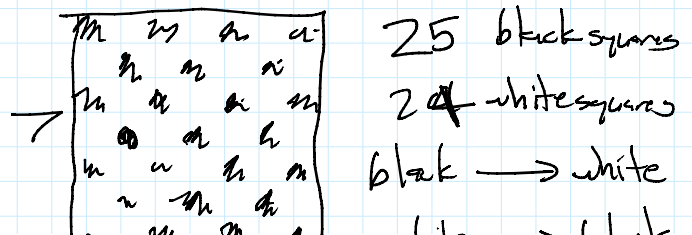 7
25 black squares
24 white squares
blak → white